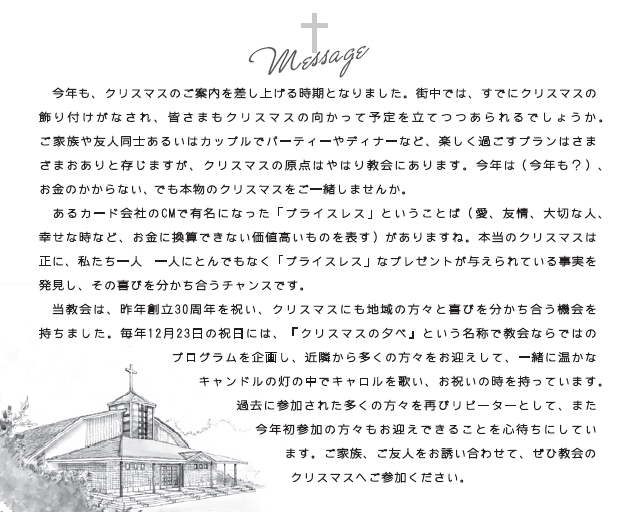 Message
今年も、クリスマスのご案内を差し上げる時期となりました。街中では、すでにクリスマスの
飾り付けがなされ、皆さまもクリスマスの向かって予定を立てつつあられるでしょうか。
ご家族や友人同士あるいはカップルでパーティーやディナーなど、楽しく過ごすプランはさま
ざまおありと存じますが、クリスマスの原点はやはり教会にあります。今年は（今年も？）、
お金のかからない、でも本物のクリスマスをご一緒しませんか。
あるカード会社のCMで有名になった「プライスレス」ということば（愛、友情、大切な人、
幸せな時など、お金に換算できない価値高いものを表す）がありますね。本当のクリスマスは
正に、私たち一人　一人にとんでもなく「プライスレス」なプレゼントが与えられている事実を
発見し、その喜びを分かち合うチャンスです。
当教会は、昨年創立30周年を祝い、クリスマスにも地域の方々と喜びを分かち合う機会を
持ちました。毎年12月23日の祝日には、『クリスマスの夕べ』という名称で教会ならではの
プログラムを企画し、近隣から多くの方々をお迎えして、一緒に温かな
キャンドルの灯の中でキャロルを歌い、お祝いの時を持っています。
過去に参加された多くの方々を再びリピーターとして、また
今年初参加の方々もお迎えできることを心待ちにしてい
ます。ご家族、ご友人をお誘い合わせて、ぜひ教会の
クリスマスへご参加ください。